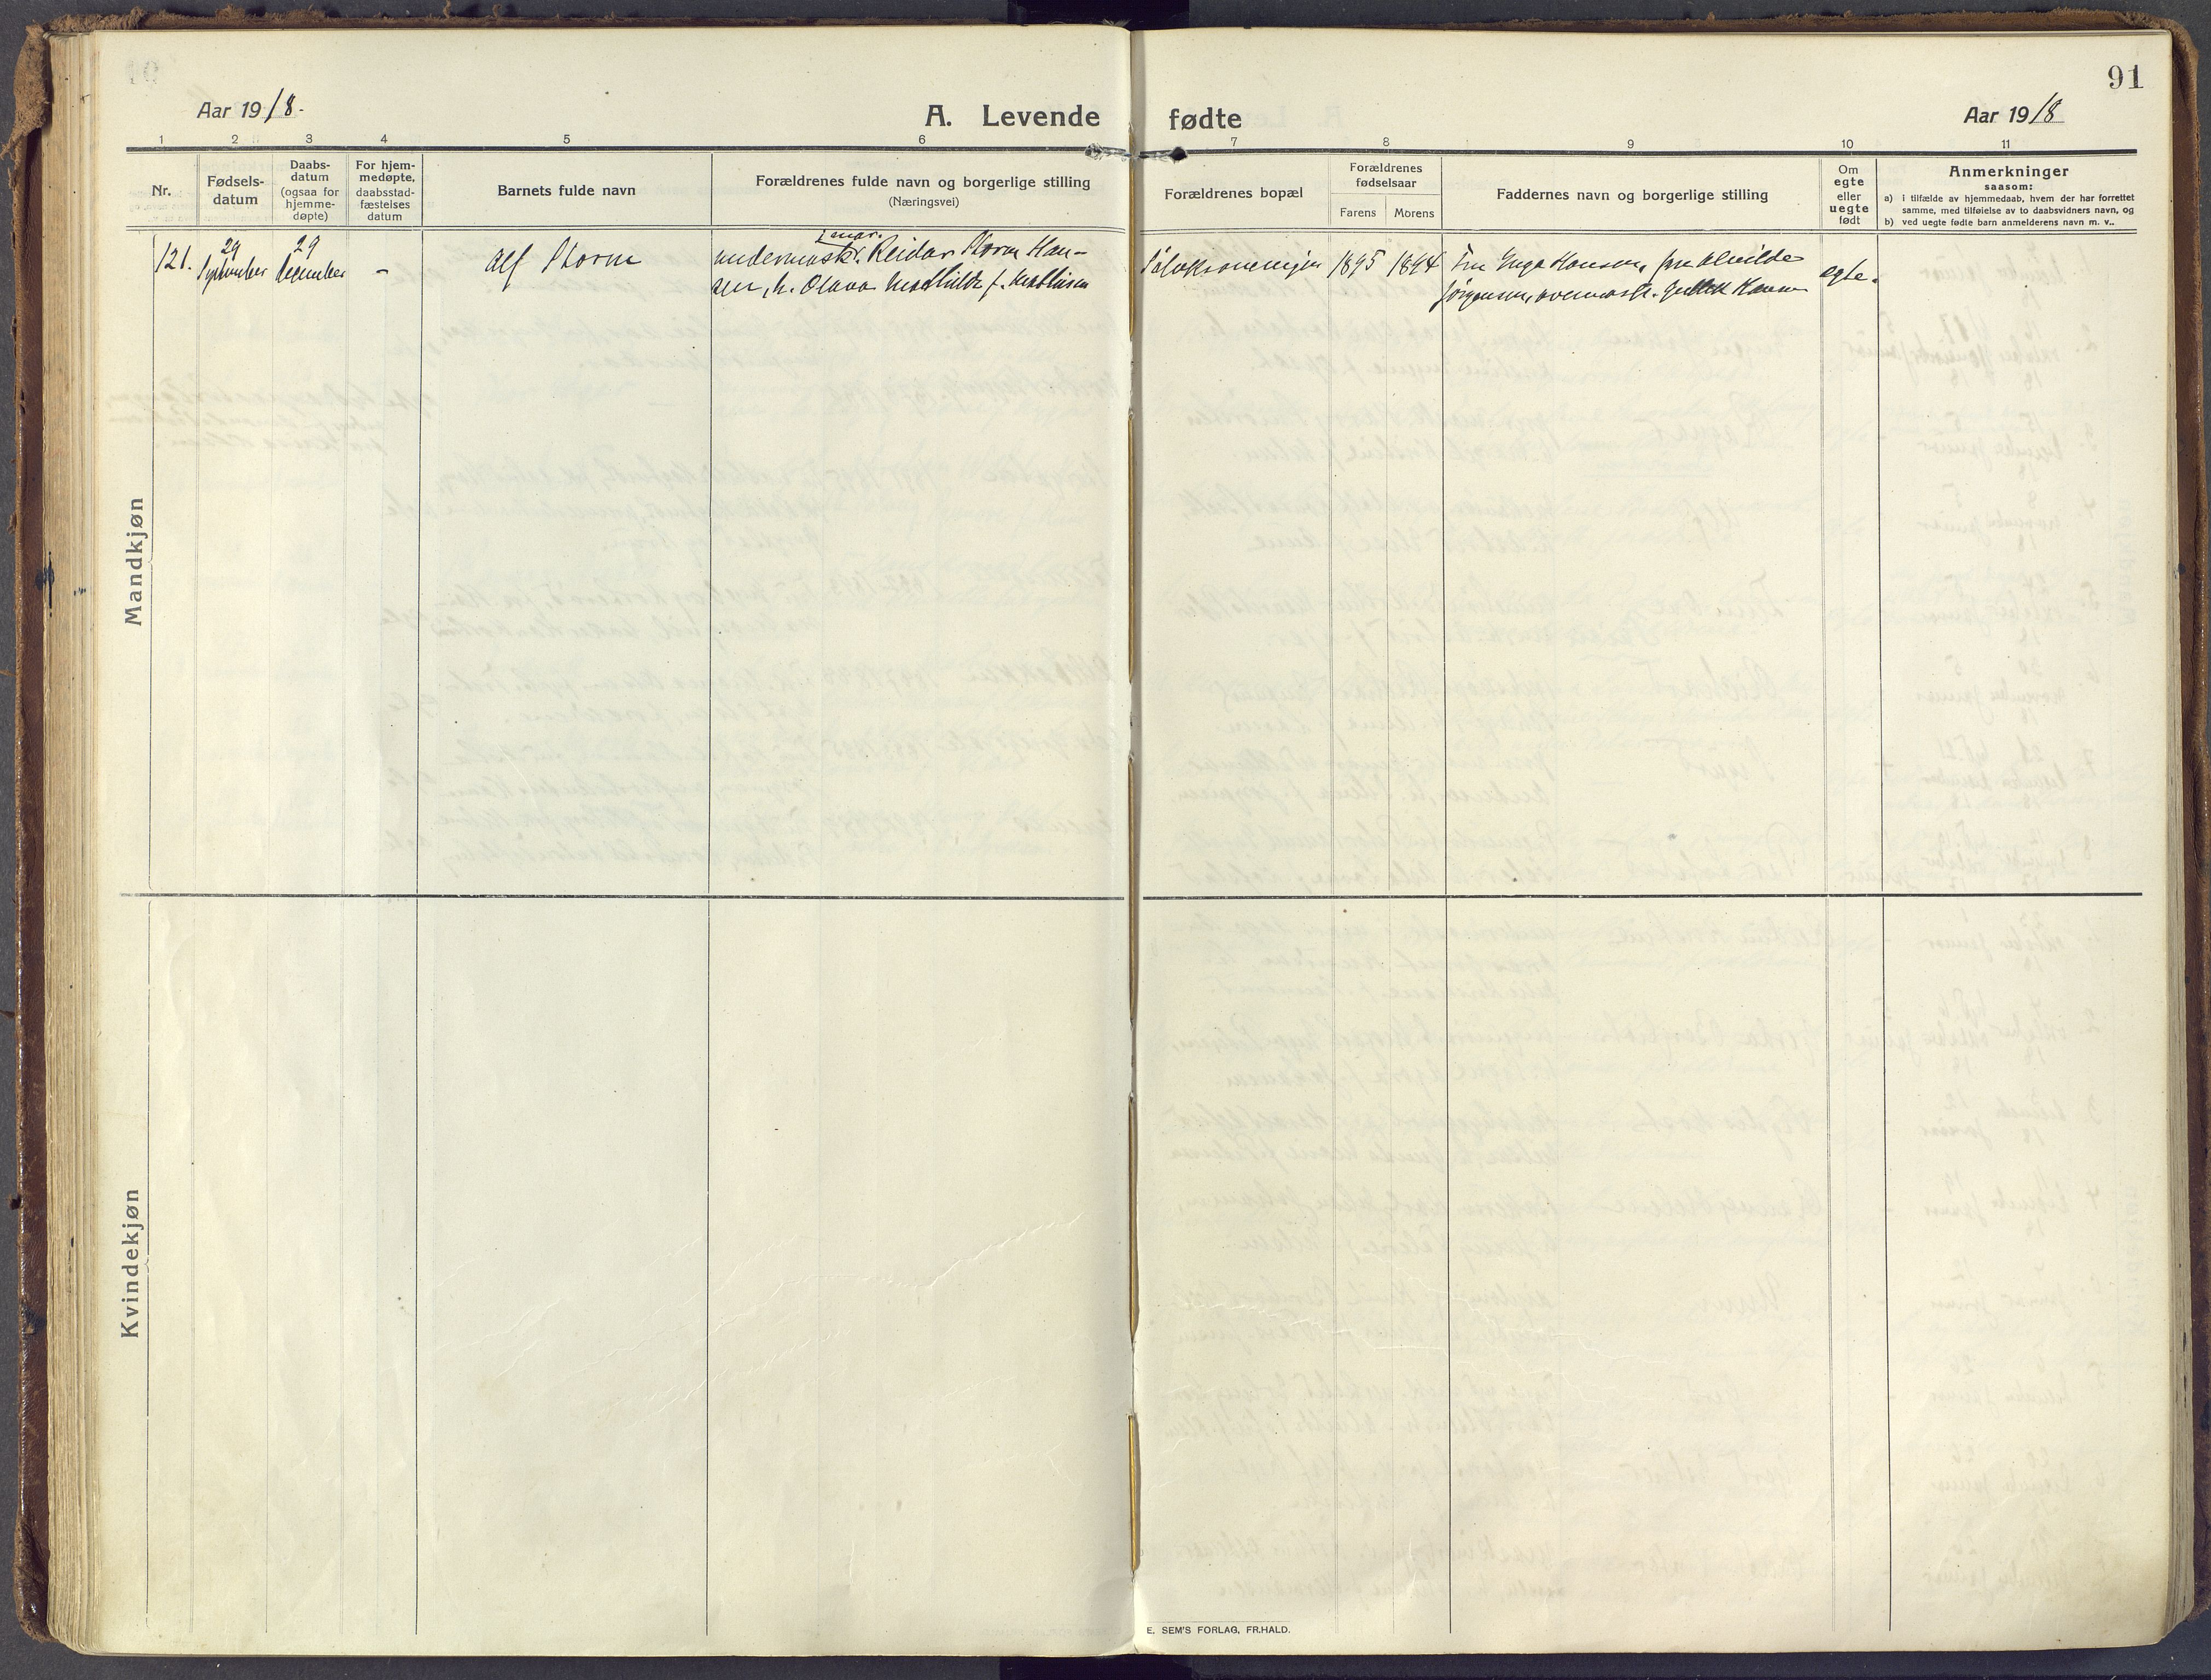 91
Aar 1918.
A. Levende fødte
Aar 1918
1 2 3 4 5 6 7 8 9 10 11
Nr.
Fødsels-
datum
Daabs-
datum
(ogsaa for
hjemme-
døpte)
For hjem-
medøpte,
daabsstad-
fæstelses
datum
Barnets fulde navn
Forældrenes fulde navn og borgerlige stilling
(Næringsvei)
Forældrenes bopæl
Forældrenes
fødselsaar
Farens
Morens
Faddernes navn og borgerlige stilling
Om
egte
eller
uegte
født
Anmerkninger
saasom:
a) i tilfælde av hjemmedaab, hvem der har forrettet
samme, med tilføielse av to daabsvidners navn, og
b) ved uegte fødte barn anmelderens navn m. v..
Mandkjøn
121.
29 September
29 December
-
Alf Storm
undermaskr. Reidar Storm Han-
sen, h. Olava Mathilde f. Mathisen
1895 1894
Fru Inga Hansen, fru Alvilde
Jörgensen, overmask. Hansen
egte.
Kvindekjøn
E. SEM'S FORLAG, FR.HALD.